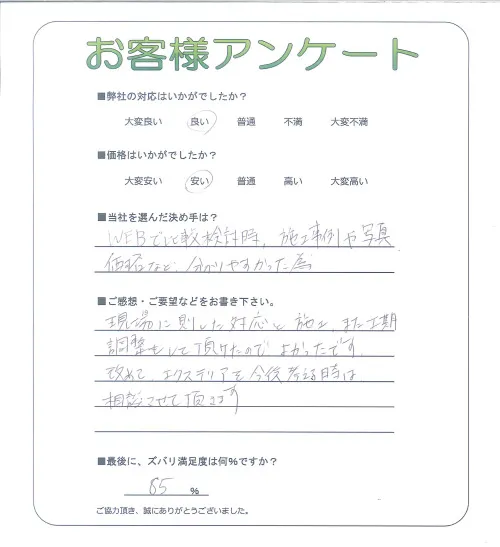 お客様アンケート
■弊社の対応はいかがでしたか？
大変良い 良い 普通 不満 大変不満
■価格はいかがでしたか？
大変安い 安い 普通 高い 大変高い
■当社を選んだ決め手は？
WEBで比較検討時、施工事例や写真
価格など、分かりやすかった為
■ご感想・ご要望などをお書き下さい。
現場に則した対応と施工、また工期
調整もして頂けたのでよかったです。
改めて、エクステリアを今後考える時は
相談させて頂きます
■最後に、ズバリ満足度は何％ですか？
85 ％
ご協力頂き、誠にありがとうございました。